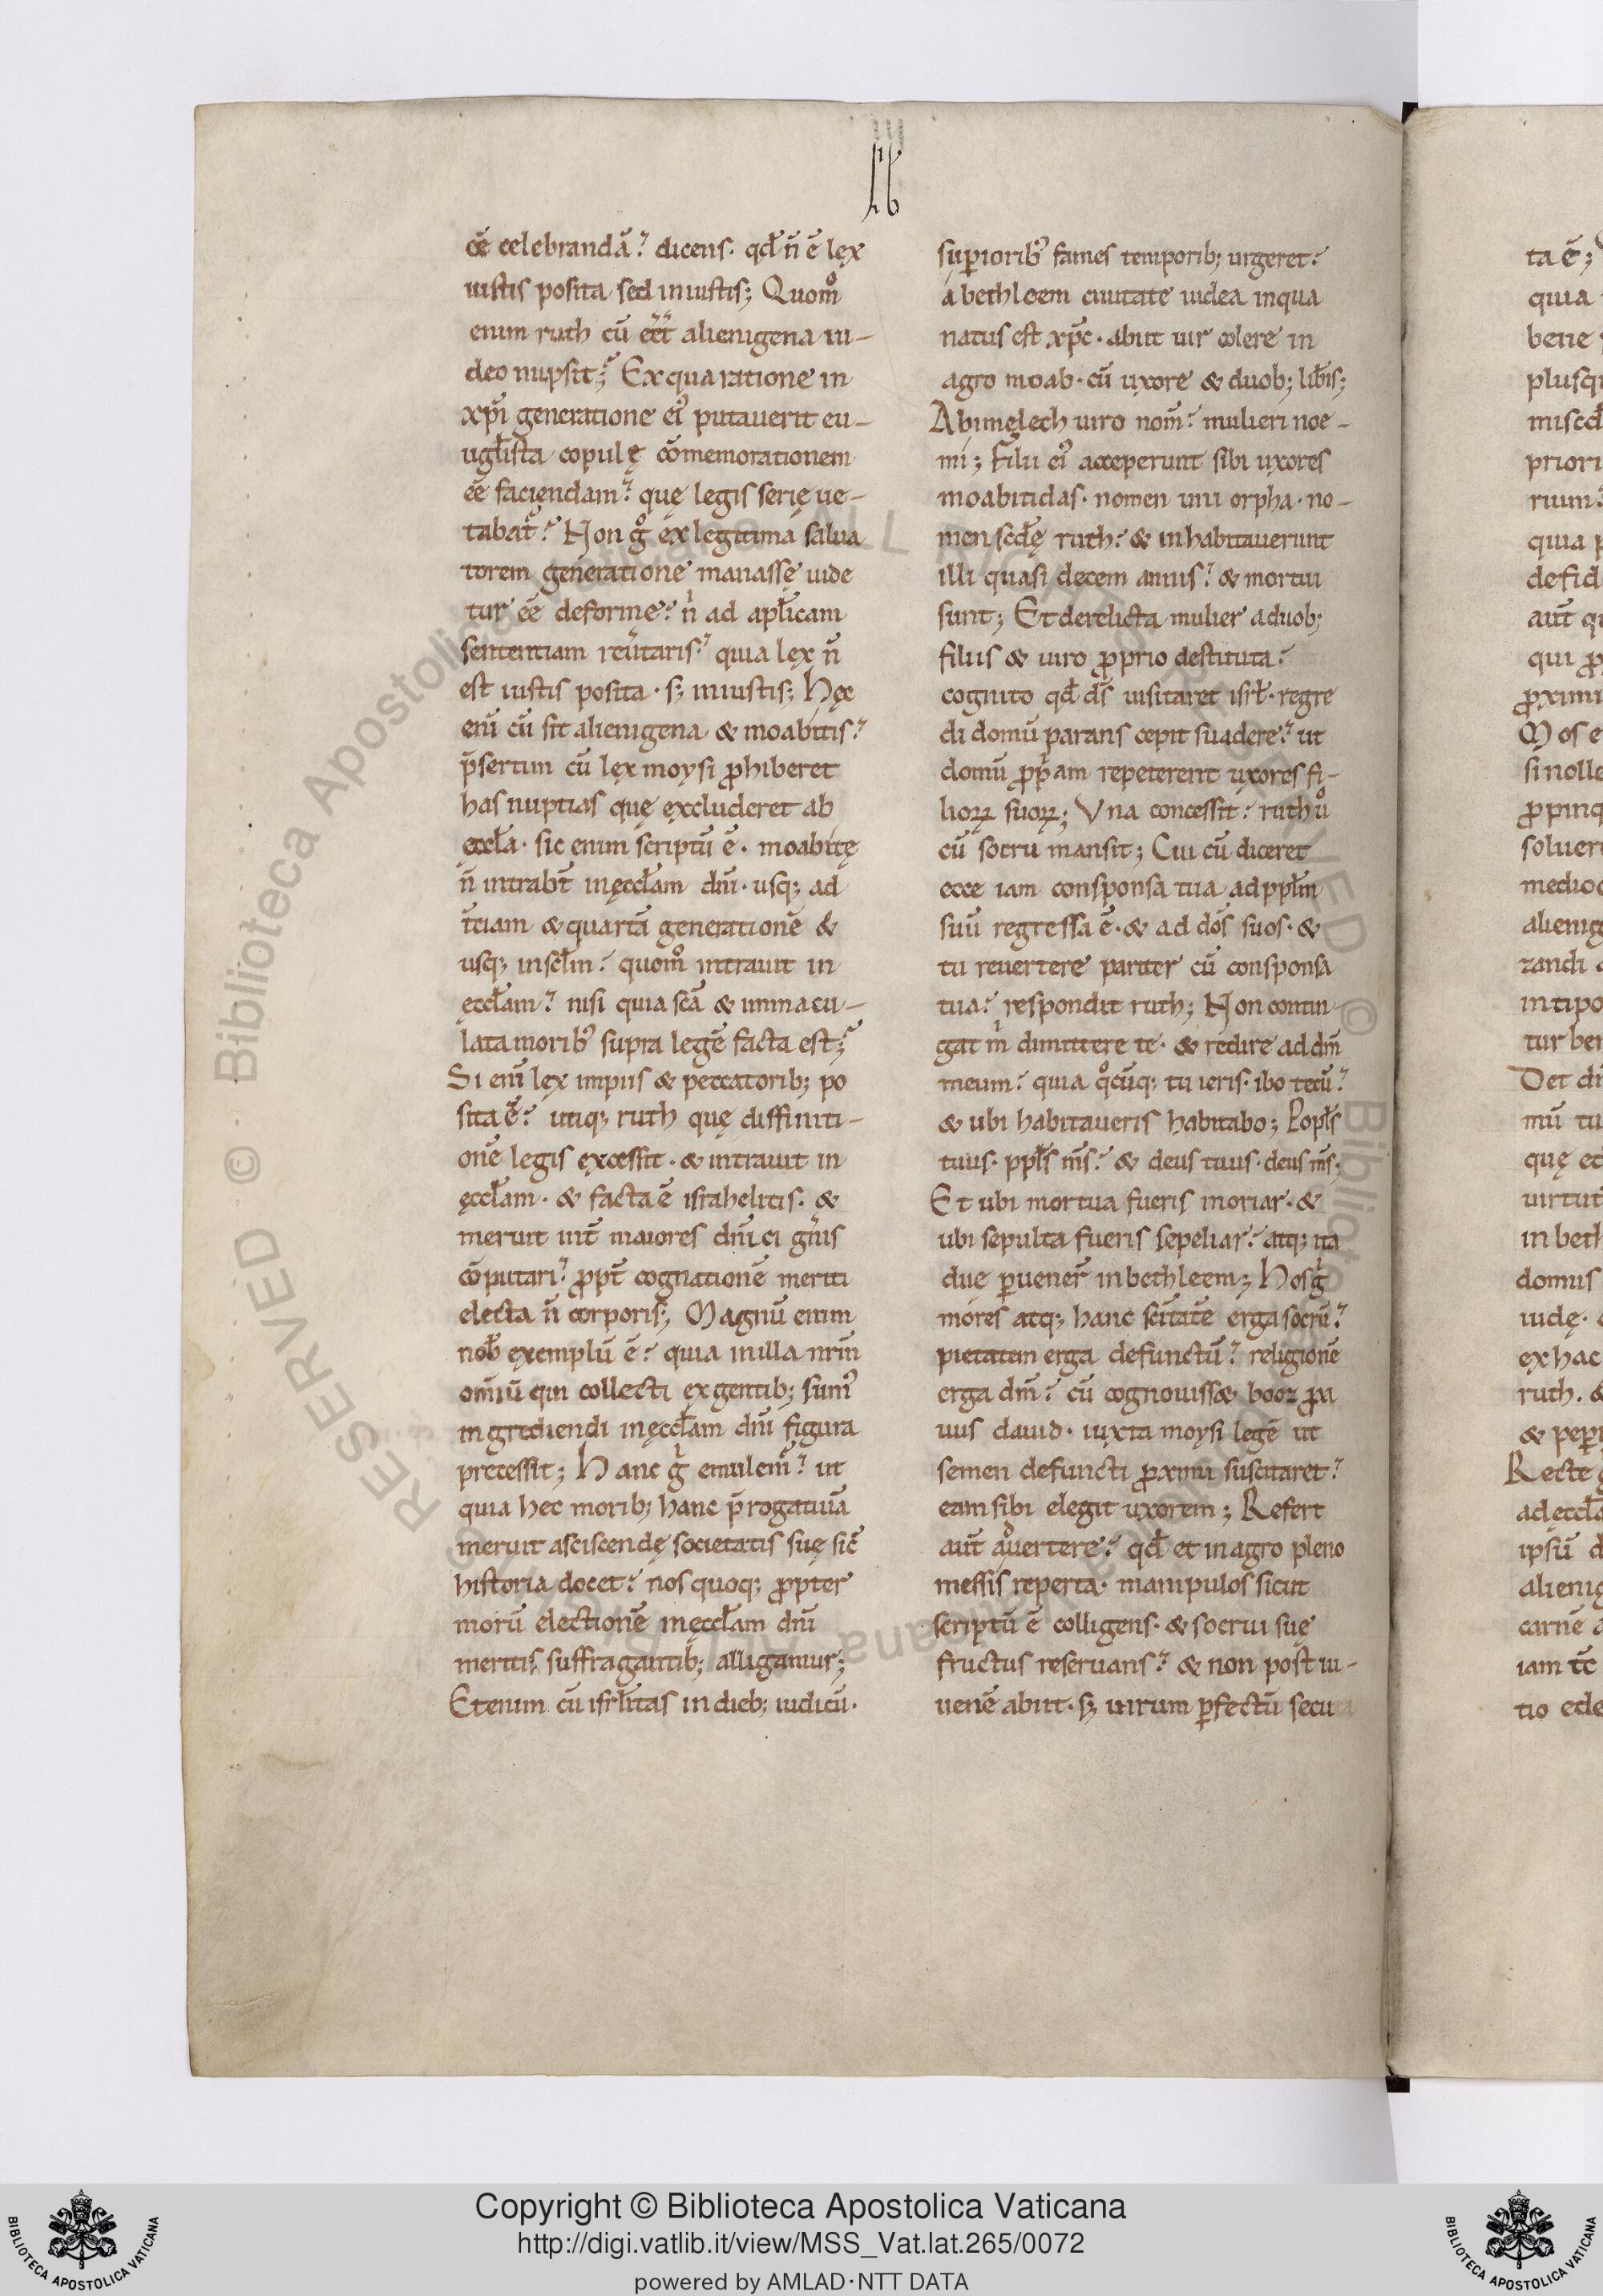 lib
cē celebrandā? dicens. qđ n̄ ē lex
iustis posita sed iniustis; Quom̊
enim ruth cū eēt alienigena iu-
deo nupsit? Ex qua ratione in
xp̄i generatione ei' putauerit eu-
ugl̄ista copulę cōmemorationem
eē faciendam? quę legis serię ue-
tabat'? Non g̊ ex legitima salua
torem generatione manasse uide
tur eē deforme? n' ad apl̄icam
sententiam reuertaris? quia lex n̄
est iustis posita. s; iniustis; Hęc
enī cū sit alienigena & moabitis?
p̄sertim cū lex moysi ꝓhiberet
has nuptias quę excluderet ab
ęccl̄a. sic enim scriptū ē. moabitę
n̄ intrab̄t in ęccl̄am dn̄i. usq; ad
t̄tiam & quartā generationē &
usq; in scl̄m? quom̊ intrauit in
ęccl̄am? nisi quia sc̄a & immacu-
lata morib' supra legē facta est?
Si enī lex impiis & peccatorib; po
sita ē? utiq; ruth quę diffiniti-
onē legis excessit. & intrauit in
ęccl̄am. & facta ē israhelitis. &
meruit int̄ maiores dn̄ici gn̄is
cōputari? ꝓpt̄ cognationē mentis
electa n̄ corporis; Magnū enim
nob̄ exemplū ē? quia in illa nr̄m
omīū qui collecti ex gentib; sum'
ingrediendi in ęccl̄am dn̄i figura
precessit; Hanc g' emulem'? ut
quia hec morib; hanc p̄rogatiuā
meruit asciscendę societatis suę sic̄
historia docet? nos quoq; ꝓpter
morū electionē in ęccl̄am dn̄i
meritis suffragantib; alligamur;
Etenim cū isrl̄itas in dieb; iudicū.
supiorib' fames temporib; urgeret?
a bethleem ciuitate iudea in qua
natus est xp̄c. abiit uir colere in
agro moab. cū uxore & duob; lib̄is;
Abimęlech uiro nom̄? mulieri noe-
mi; Filii ei' acceperunt sibi uxores
moabitidas. nomen uni orpha. no-
men scđę ruth? & inhabitauerunt
illi quasi decem annis? & mortui
sunt; Et derelicta mulier a duob;
filiis & uiro ꝓprio destituta?
cognito qđ dš uisitaret isrl̄. regre
di domū parans cepit suadere? ut
domū ꝓp̄am repeterent uxores fi-
lioꝝ suoꝝ; Vna concessit? ruth ů
cū socru mansit; Cui cū diceret
ecce iam consponsa tua ad ppl̄m
suū regressa ē. & ad dōs suos. &
tu reuertere pariter cū consponsa
tua? respondit ruth; Non contin-
gat m' dimittere te. & redire ad dm̄
meum? quia q̊cūq; tu ieris. ibo tecū?
& ubi habitaueris habitabo; Popl̄s
tuus. ppl̄s ms̄? & deus tuus. deus ms̄;
Et ubi mortua fueris moriar. &
ubi sepulta fueris sepeliar? atq; ita
due ꝑuener̄ in bethleem; Hos g'
mores atq; hanc sc̄itatē erga socrū?
pietatem erga defunctū? religionē
erga dm̄? cū cognouiss& booz ꝓa
uus dauid. iuxta moysi legē ut
semen defuncti ꝓximi suscitaret?
eam sibi elegit uxorem; Refert
aut̄ aduertere? qđ et in agro pleno
messis reperta. manipulos sicut
scriptū ē colligens. & socrui suę
fructus reseruans? & non post iu-
uenē abiit. s; uirum ꝑfectū secu
ta ē;
quia
bene
plusq
miscd
priori
rium?
quia p
defid
aut̄ q
qui ꝓ
ꝓximi
Mos e
si nolle
ꝓpinq
soluer
medioc
alienig
zandi
in tipo
tur ben
Det dn̄
mū tu
quę ed
uirtut
in beth
domus
iudę.
ex hac
ruth. &
& pepi
Recte
ad eccl̄a
ipsū d
alienig
carnē a
iam tc̄
tio ede
Copyright © Biblioteca Apostolica Vaticana
http://digi.vatlib.it/view/MSS_Vat.lat.265/0072
powered by AMLAD·NTT DATA
BIBLIOTECA APOSTOLICA VATICANA
BIBLIOTECA APOSTOLICA VATICANA